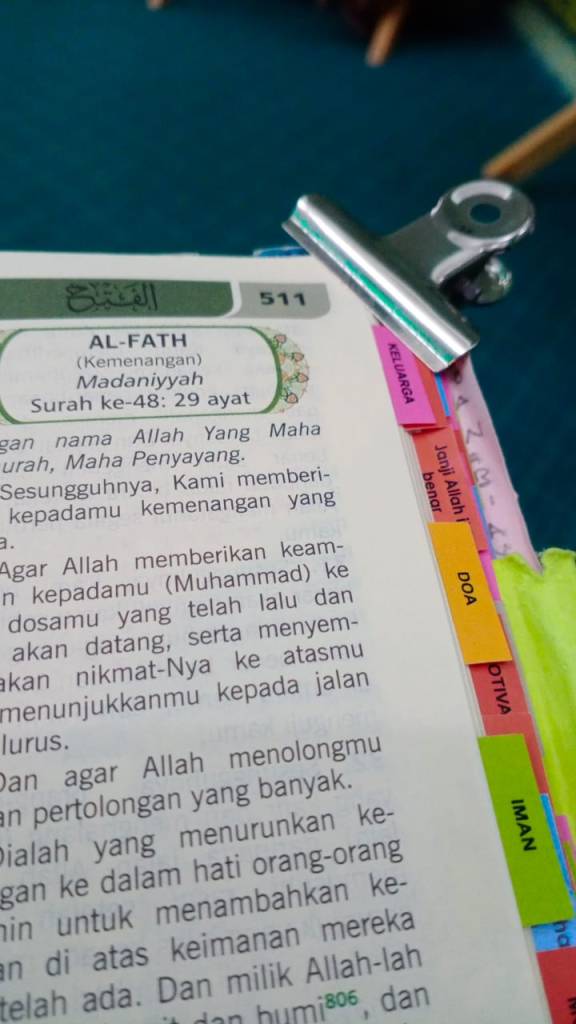 الفتح
511
AL-FATH
(Kemenangan)
Madaniyyah
Surah ke-48: 29 ayat
gan nama Allah Yang Maha
urah, Maha Penyayang.
Sesungguhnya, Kami memberi-
kepadamu kemenangan yang
a.
Agar Allah memberikan keam-
n kepadamu (Muhammad) ke
dosamu yang telah lalu dan
akan datang, serta menyem-
akan nikmat-Nya ke atasmu
menunjukkanmu kepada jalan
lurus.
Dan agar Allah menolongmu
an pertolongan yang banyak.
Dialah yang menurunkan ke-
gan ke dalam hati orang-orang
min untuk menambahkan ke-
an di atas keimanan mereka
telah ada. Dan milik Allah-lah
it dan bumi806, dan
KELUARGA
Janji Allah i
benar
DOA
OTIVA
IMAN